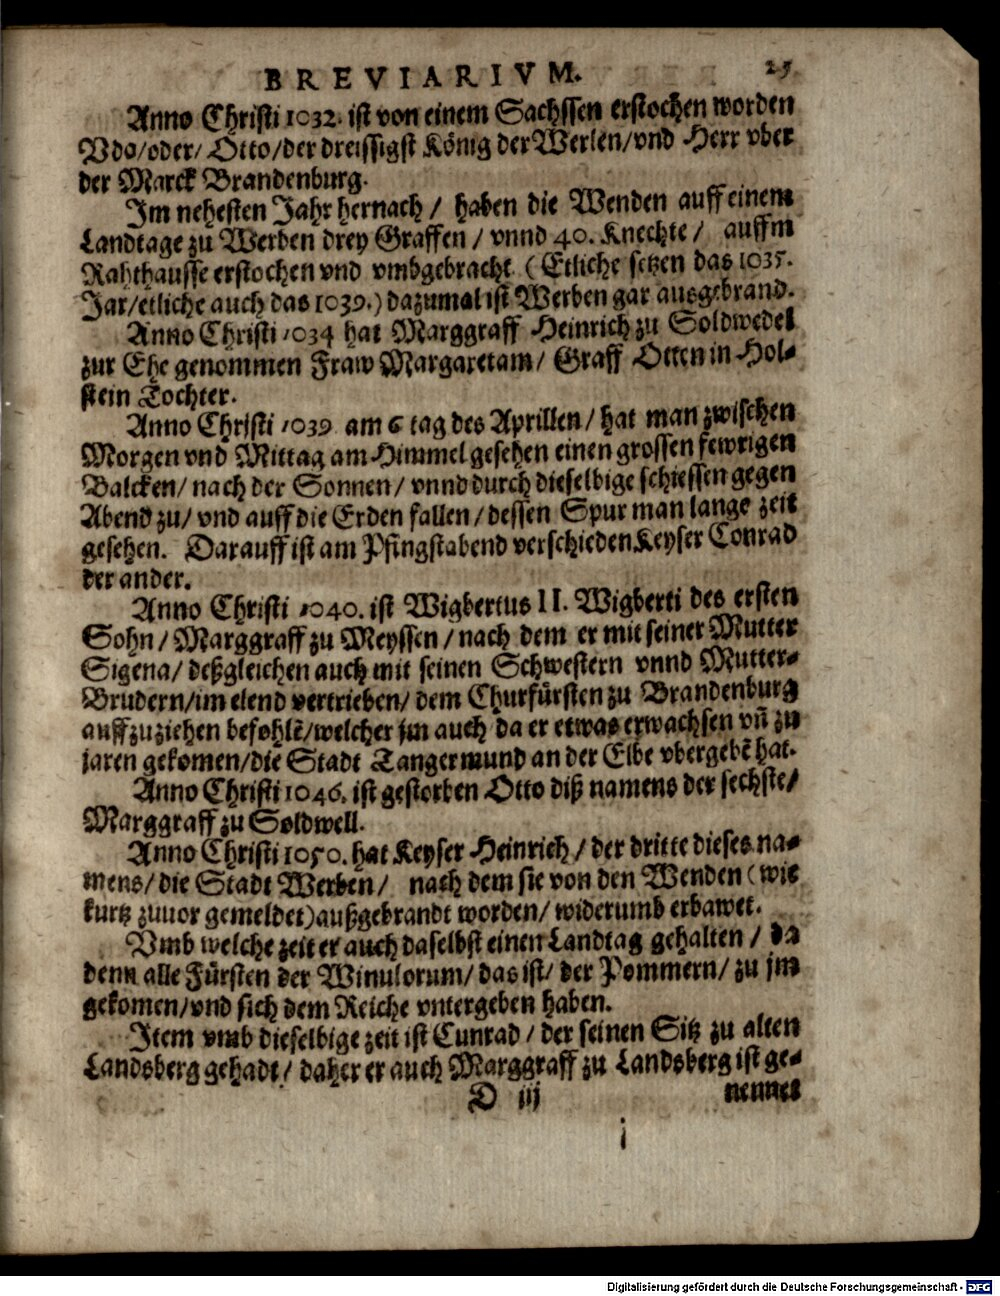 BREVIARIVM. 25
Anno Christi 1032. ist von einem Sachssen erstochen worden
Vda/oder/ Otto/der dreissigst König der Werlen/vnd Herr vber
der Marck Brandenburg.
Im nehesten Jahr hernach / haben die Wenden auff einem
Landtage zu Werben drey Graffen / vnnd 40. Knechte / auffm
Rahthausse erstochen vnd vmbgebracht (Etliche setzen das 1035.
Jar/etliche auch das 1039.) dazumal ist Werben gar ausgebrand.
Anno Christi 1034 hat Marggraff Heinrich zu Soldwedel
zur Ehe genommen Fraw Margaretam/ Graff Otten in Hol-
stein Tochter.
Anno Christi 1039 am 6 tag des Aprillen / hat man zwischen
Morgen vnd Mittag am Himmel gesehen einen grossen fewrigen
Balcken/ nach der Sonnen/ vnnd durch dieselbige schiessen gegen
Abend zu/ vnd auff die Erden fallen / dessen Spur man lange zeit
gesehen. Darauff ist am Pfingstabend verschieden Keyser Conrad
der ander.
Anno Christi 1040. ist Wigbertus II. Wigberti des ersten
Sohn / Marggraff zu Meyssen / nach dem er mit seiner Mutter
Sigena/ deßgleichen auch mit seinen Schwestern vnnd Mutter-
Brudern/im elend vertrieben/ dem Churfürsten zu Brandenburg
auffzuziehen befohlẽ/welcher jm auch da er etwas erwachsen vñ zu
jaren gekomen/die Stadt Tangermund an der Elbe vbergebẽ hat.
Anno Christi 1046. ist gestorben Otto diß namens der sechste/
Marggraff zu Soldwell.
Anno Christi 1050. hat Keyser Heinrich / der dritte dieses na-
mens/ die Stadt Werben / nach dem sie von den Wenden (wie
kurtz zuuor gemeldet) außgebrandt worden/ widerumb erbawet.
Vmb welche zeit er auch daselbst einen Landtag gehalten / da
denn alle Fürsten der Winulorum/ das ist/ der Pommern/ zu jm
gekomen/vnd sich dem Reiche vntergeben haben.
Item vmb dieselbige zeit ist Cunrad / der seinen Sitz zu alten
Landsberg gehadt / daher er auch Marggraff zu Landsberg ist ge-
D iij nennet
i
Digitalisierung gefördert durch die Deutsche Forschungsgemeinschaft - DFG